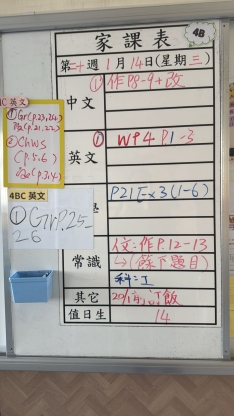 家課表
4B
第二十週 1月14日(星期三)
中文
① 作P8-9+改
英文
① WP4 P.1-3
學
P21 Ex3(1-6)
常識
人文:作P.12-13
↳(餘下題目)
科:工
其它
飯
值日生
14
英文
① Gr(P.23,24)
② Chws
(p.5-6)
4BC 英文
① Gr P.25-
26